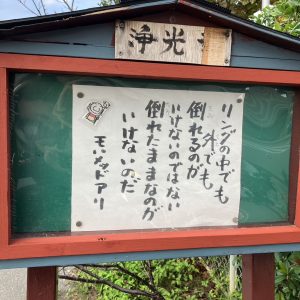 浄光寺
リングの中でも
外でも
倒れるのが
いけないのではない
倒れたままなのが
いけないのだ
モハメッドアリ